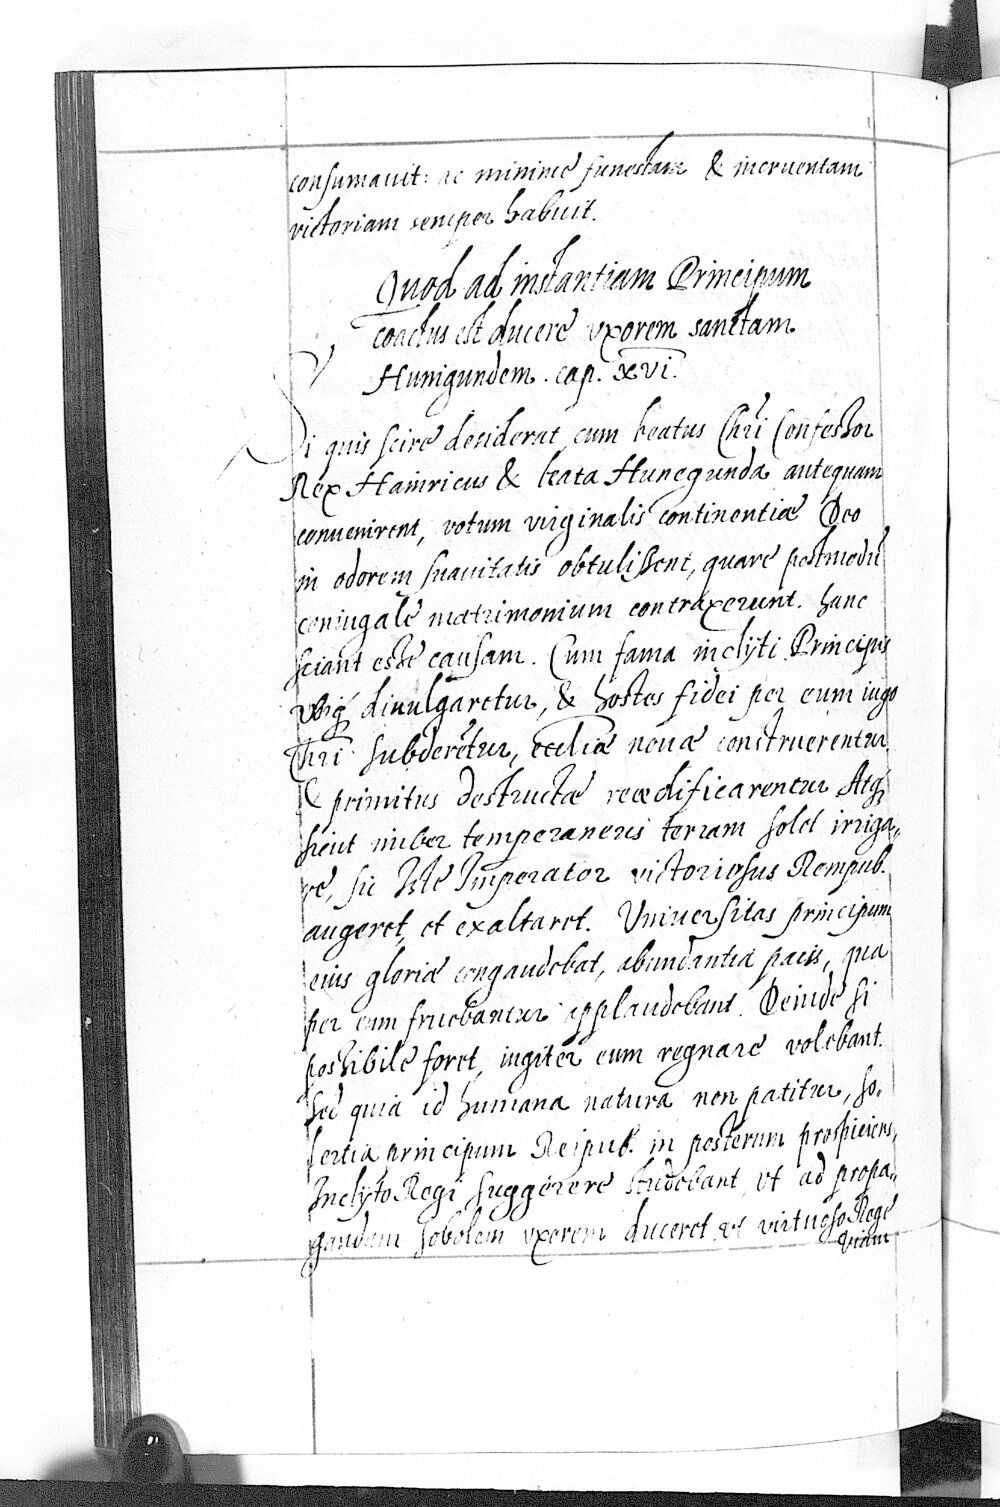 consumauit: ac minime funestam & incruentam
victoriam semper habuit.
Quod ad instantiam Principum
coactus est ducere vxorem sanctam
Hunigundem. cap. xvi.
Si quis scire desiderat, cum beatus Chri Confessor
Rex Hainricus & beata Hunegunda antequam
conuenirent, votum virginalis continentiæ Deo
in odorem suauitatis obtulissent, quare postmodū
coniugale matrimonium contraxerunt. hanc
sciant esse causam. Cum fama inclyti Principis
vbiq; diuulgaretur, & hostes fidei per eum iugo
Chri subderetur, eccliæ nouæ construerentur,
& primitus destructæ reædificarentur Atq;
sicut imber temperaneus terram solet irriga„
re, sic Iste Imperator victoriosus Rempub.
augeret, et exaltaret. Vniuersitas principum
eius gloriæ congaudebat, abundantia pacis, qua
per eum fruebantur applaudebant. Deinde si
possibile foret, iugiter eum regnare volebant.
Sed quia id humana natura non patitur, so„
lertia principum Reipub. in posterum prospiciens,
Inclyto Regi suggerere studebant, vt ad propa„
gandam sobolem vxorem duceret, vt virtuoso Rege
viam